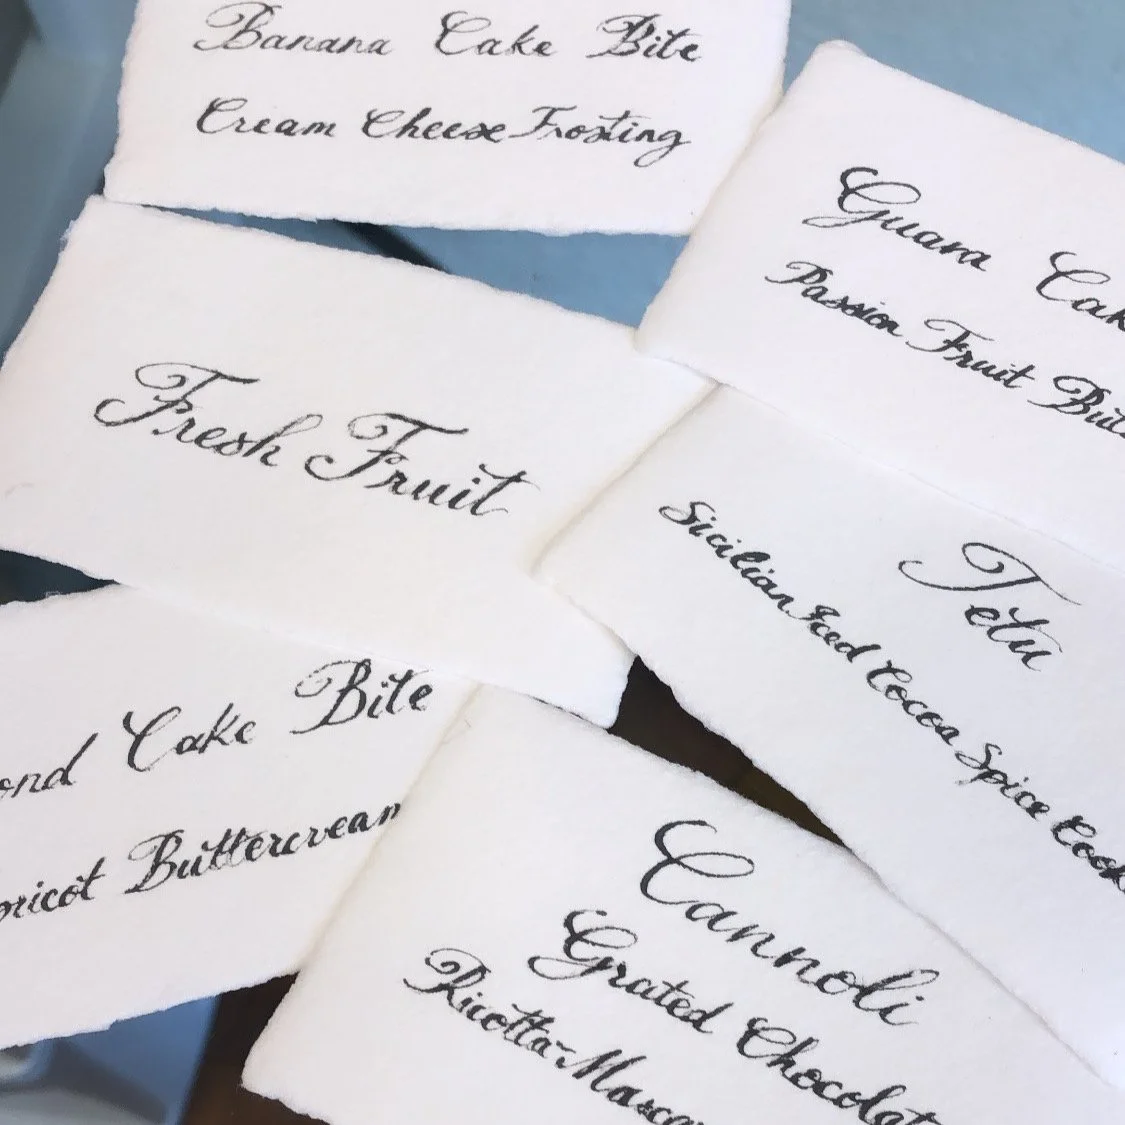 Banana Cake Bite
Cream Cheese Frosting
Guava Cak
Passion Fruit But
Fresh Fruit
Tetu
Sicilian Iced Cocoa Spice Cook
ond Cake Bite
pricot Buttercream
Cannoli
Grated Chocolat
Ricotta-Masca